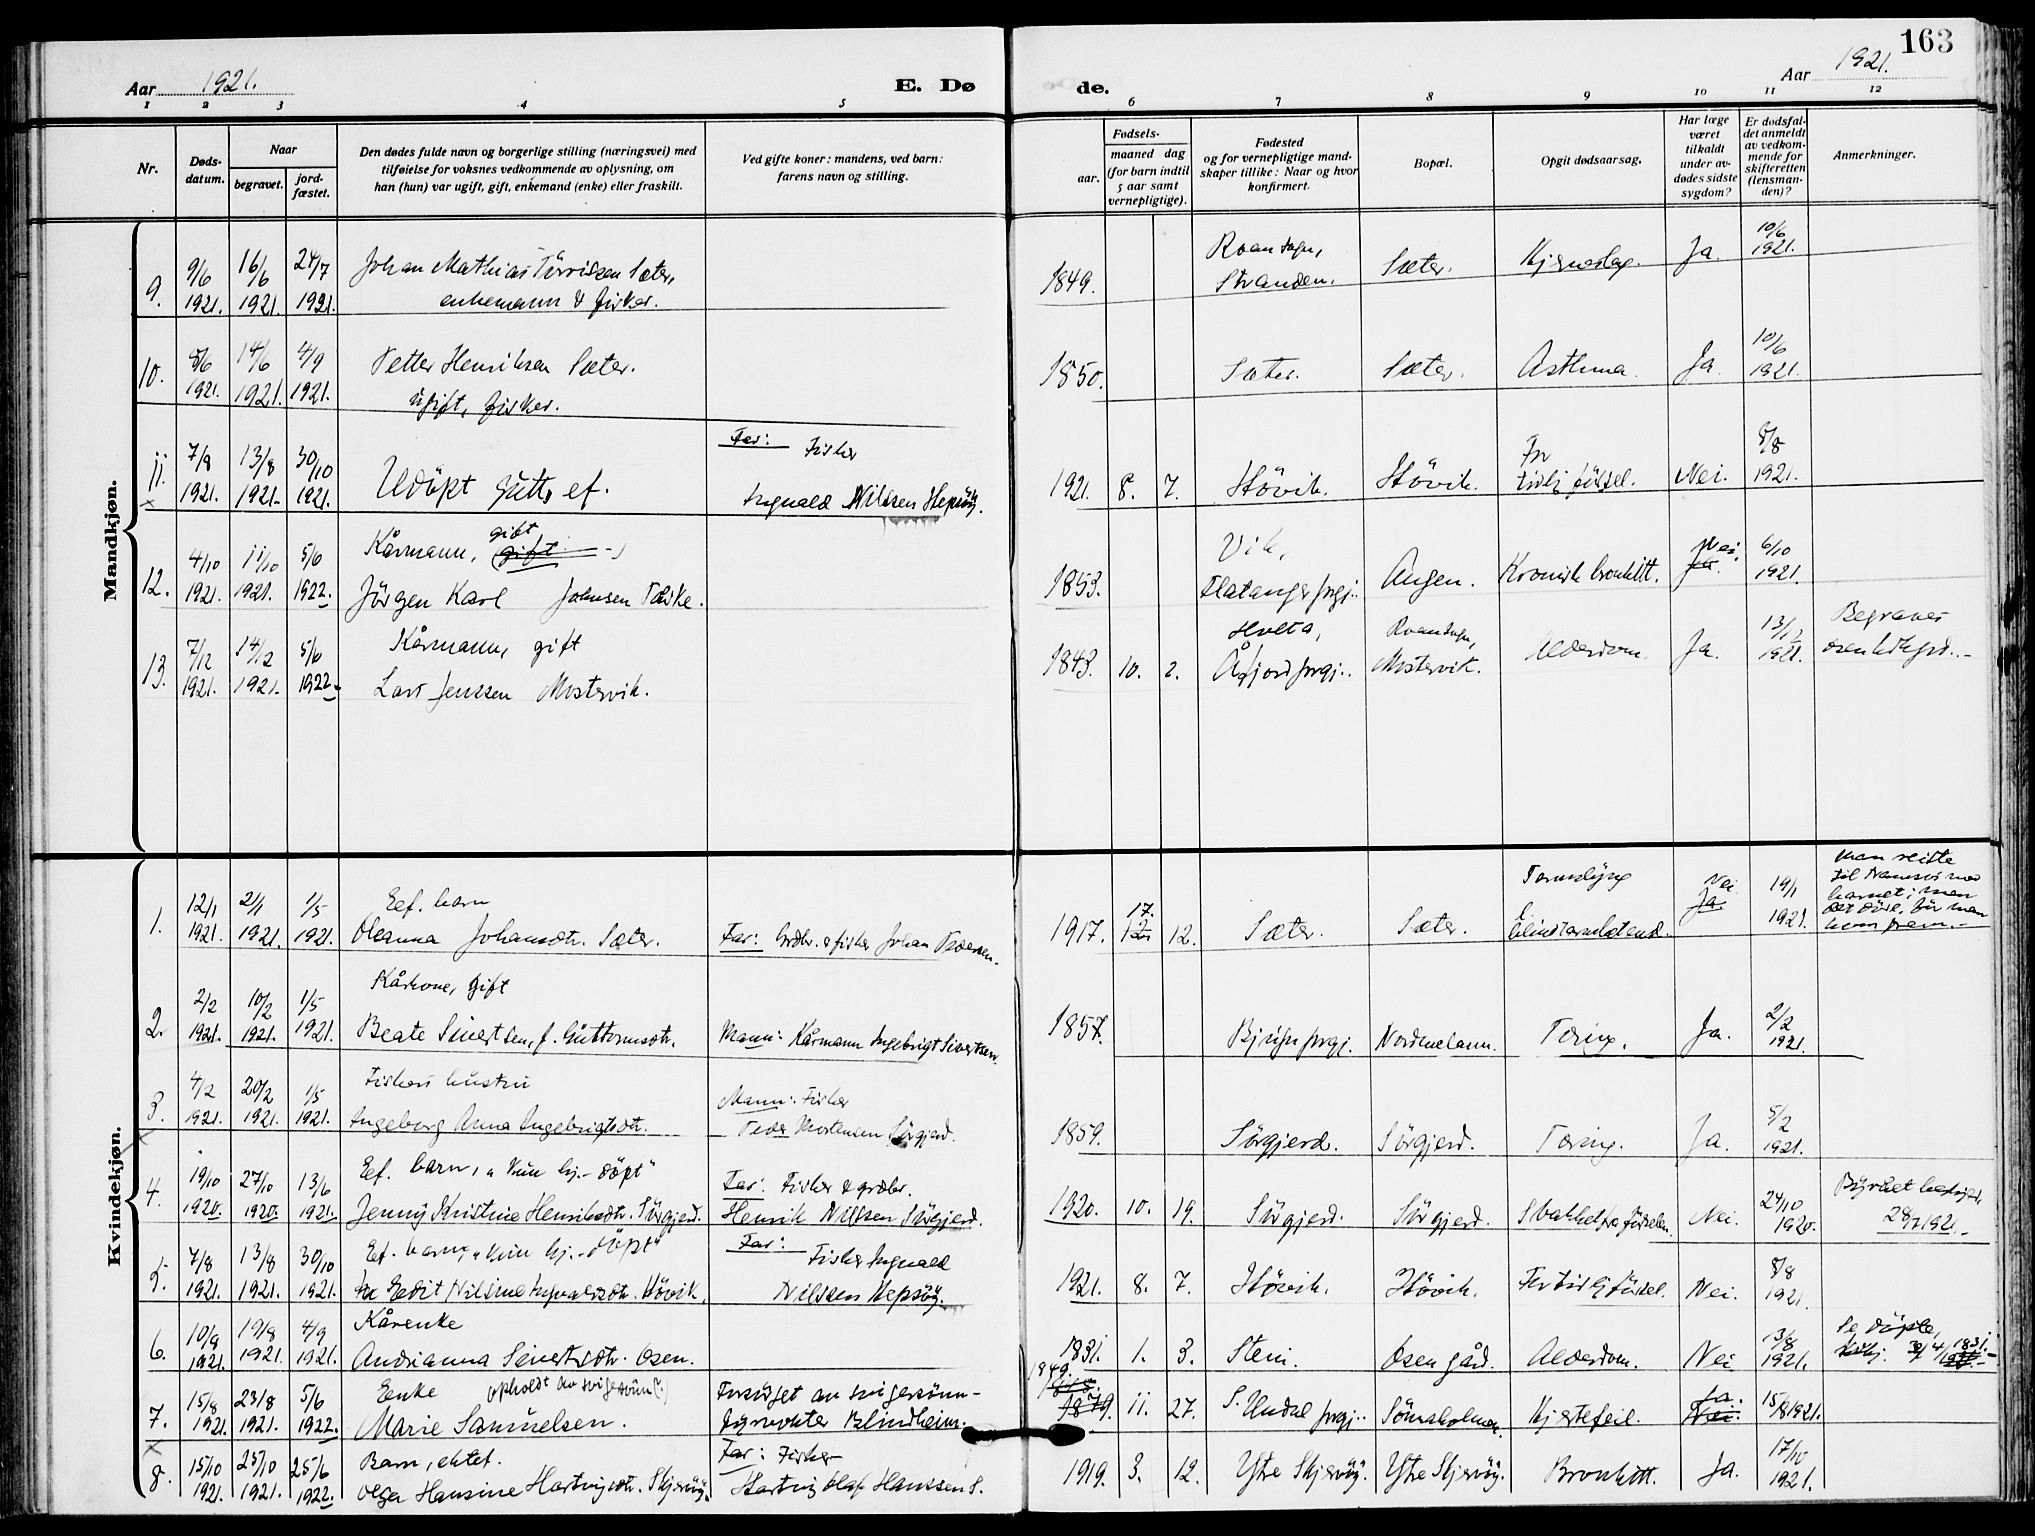 163
Aar 1921.
E. Dø de.
Aar 1921.
1 2 3 4 5 6 7 8 9 10 11 12
Nr.
Døds-
datum.
Naar
begravet.
jord-
fæstet.
Den dødes fulde navn og borgerlige stilling (næringsvei) med
tilføielse for voksnes vedkommende av oplysning, om
han (hun) var ugift, gift, enkemand (enke) eller fraskilt.
Ved gifte koner: mandens, ved barn:
farens navn og stilling.
Fødsels-
aar.
maaned dag
(for barn indtil
5 aar samt
vernepligtige).
Fødested
og for vernepligtige mand-
skaper tillike: Naar og hvor
konfirmert.
Bopæl.
Opgit dødsaarsag.
Har læge
været
tilkaldt
under av-
dødes sidste
sygdom?
Er dødsfal-
det anmeldt
av vedkom-
mende for
skifteretten
(lensman-
den)?
Anmerkninger.
Mandkjøn.
9. 9/6 1921. 16/6 1921. 24/7 1921.
Johan Mathias Sæter,
enkemann & fisker.
1849. Roan sogn, Stranden. Sæter. Hjerneslag. Ja. 10/6 1921.
10. 8/6 1921. 14/6 1921. 4/9 1921.
Petter Henriksen Sæter.
ugift, fisker.
1850. Sæter. Sæter. Asthma. Ja. 10/6 1921.
11. 7/8 1921. 13/8 1921. 30/10 1921.
Udöpt gutt, ef.
Far: Fisker
Ingvald Nilssen Hepsöy.
1921. 8. 7. Hövik. Hövik. For tidlig födsel. Nei. 8/8 1921.
12. 4/10 1921. 11/10 1921. 5/6 1922.
Kårmann, gift gift
Jörgen Karl Johnsen Fæske.
1853. Vik, Flatanger prgj. Angen. Kronisk bronkitt. Nei. Ja. 6/10 1921.
13. 7/12 1921. 14/12 1921. 5/6 1922.
Kårmann, gift
Lars Jenssen Mostervik.
1843. 10. 2. Holta, Åfjord prgj. Roan sogn, Mostervik. Alderdom. Ja. 13/12 1921. Begraves
Kvindekjøn.
1. 12/1 1921. 2/1 1921. 1/5 1921.
Eef. barn
Oleanna Johansdtr. Sæter.
Far: Grdbr. & fisker Johan
1917. 17. 12. Sæter. Sæter. Tarmslyng Nei Ja. 19/1 1921.
man reiste
til Namsos med
barnet; men
det döde, för man
kom frem.-
2. 2/2 1921. 10/2 1921. 1/5 1921.
Kårkone, gift
Beate Sivertsen, f. Guttormsdtr.
Mann: Kårmann Ingebrigt Sivertsen.
1857. Bjugn prgj. Nordmeland. Tæring. Ja. 2/2 1921.
3. 4/2 1921. 20/2 1921. 1/5 1921.
Fiskers hustru
Ingeborg Anna Ingebrigtsdtr.
Mann: Fisker
Peder Mortensen Sörgjerd.
1859. Sörgjerd. Sörgjerd. Tæring. Ja. 5/2 1921.
4. 19/10 1920. 27/10 1920. 13/6 1921.
Eef. barn, „kun hj.-döpt"
Jenny Kristine Henriksdtr. Sörgjerd.
Far: Fisker & grdbr.
Henrik Nilssen Sörgjerd.
1920. 10. 19. Sörgjerd. Sörgjerd. Svakhet fra födselen. Nei. 24/10 1920.
28/7 1921.
5. 7/8 1921. 13/8 1921. 30/10 1921.
Eef. barn, „kun hj.-döpt"
Edit Nilsine Ingvaldsdtr. Hövik.
Far: Fisker Ingvald
Nilssen Hepsöy.
1921. 8. 7. Hövik. Hövik. For tidlig födsel. Nei. 8/8 1921.
6. 10/8 1921. 19/8 1921. 4/9 1921.
Kårenke
Andrianna Sivertsdtr. Osen.
1831. 1. 3. Stein. Osen gård. Alderdom. Nei 13/8 1921. Se döpte,
7. 15/8 1921. 23/8 1921. 5/6 1922.
Eenke opholdt av svigersönn
Marie Samuelsen.
Forsörget av svigersönn-
fyrvokter Blindheim.
1849. 1879. 11. 27. S. Undal prgj. Sörnsholmen. Hjertefeil. Ja. Nei 15/8 1921.
8. 15/10 1921. 25/10 1921. 25/6 1922.
Barn, ektef.
Olga Hansine Hartvigsdtr. Skjervöy.
Far: Fisker
Hartvig Olaf Hanssen S.
1919. 3. 12. Ytre Skjervöy. Ytre Skjervöy. Bronkitt. Ja. 17/10 1921.